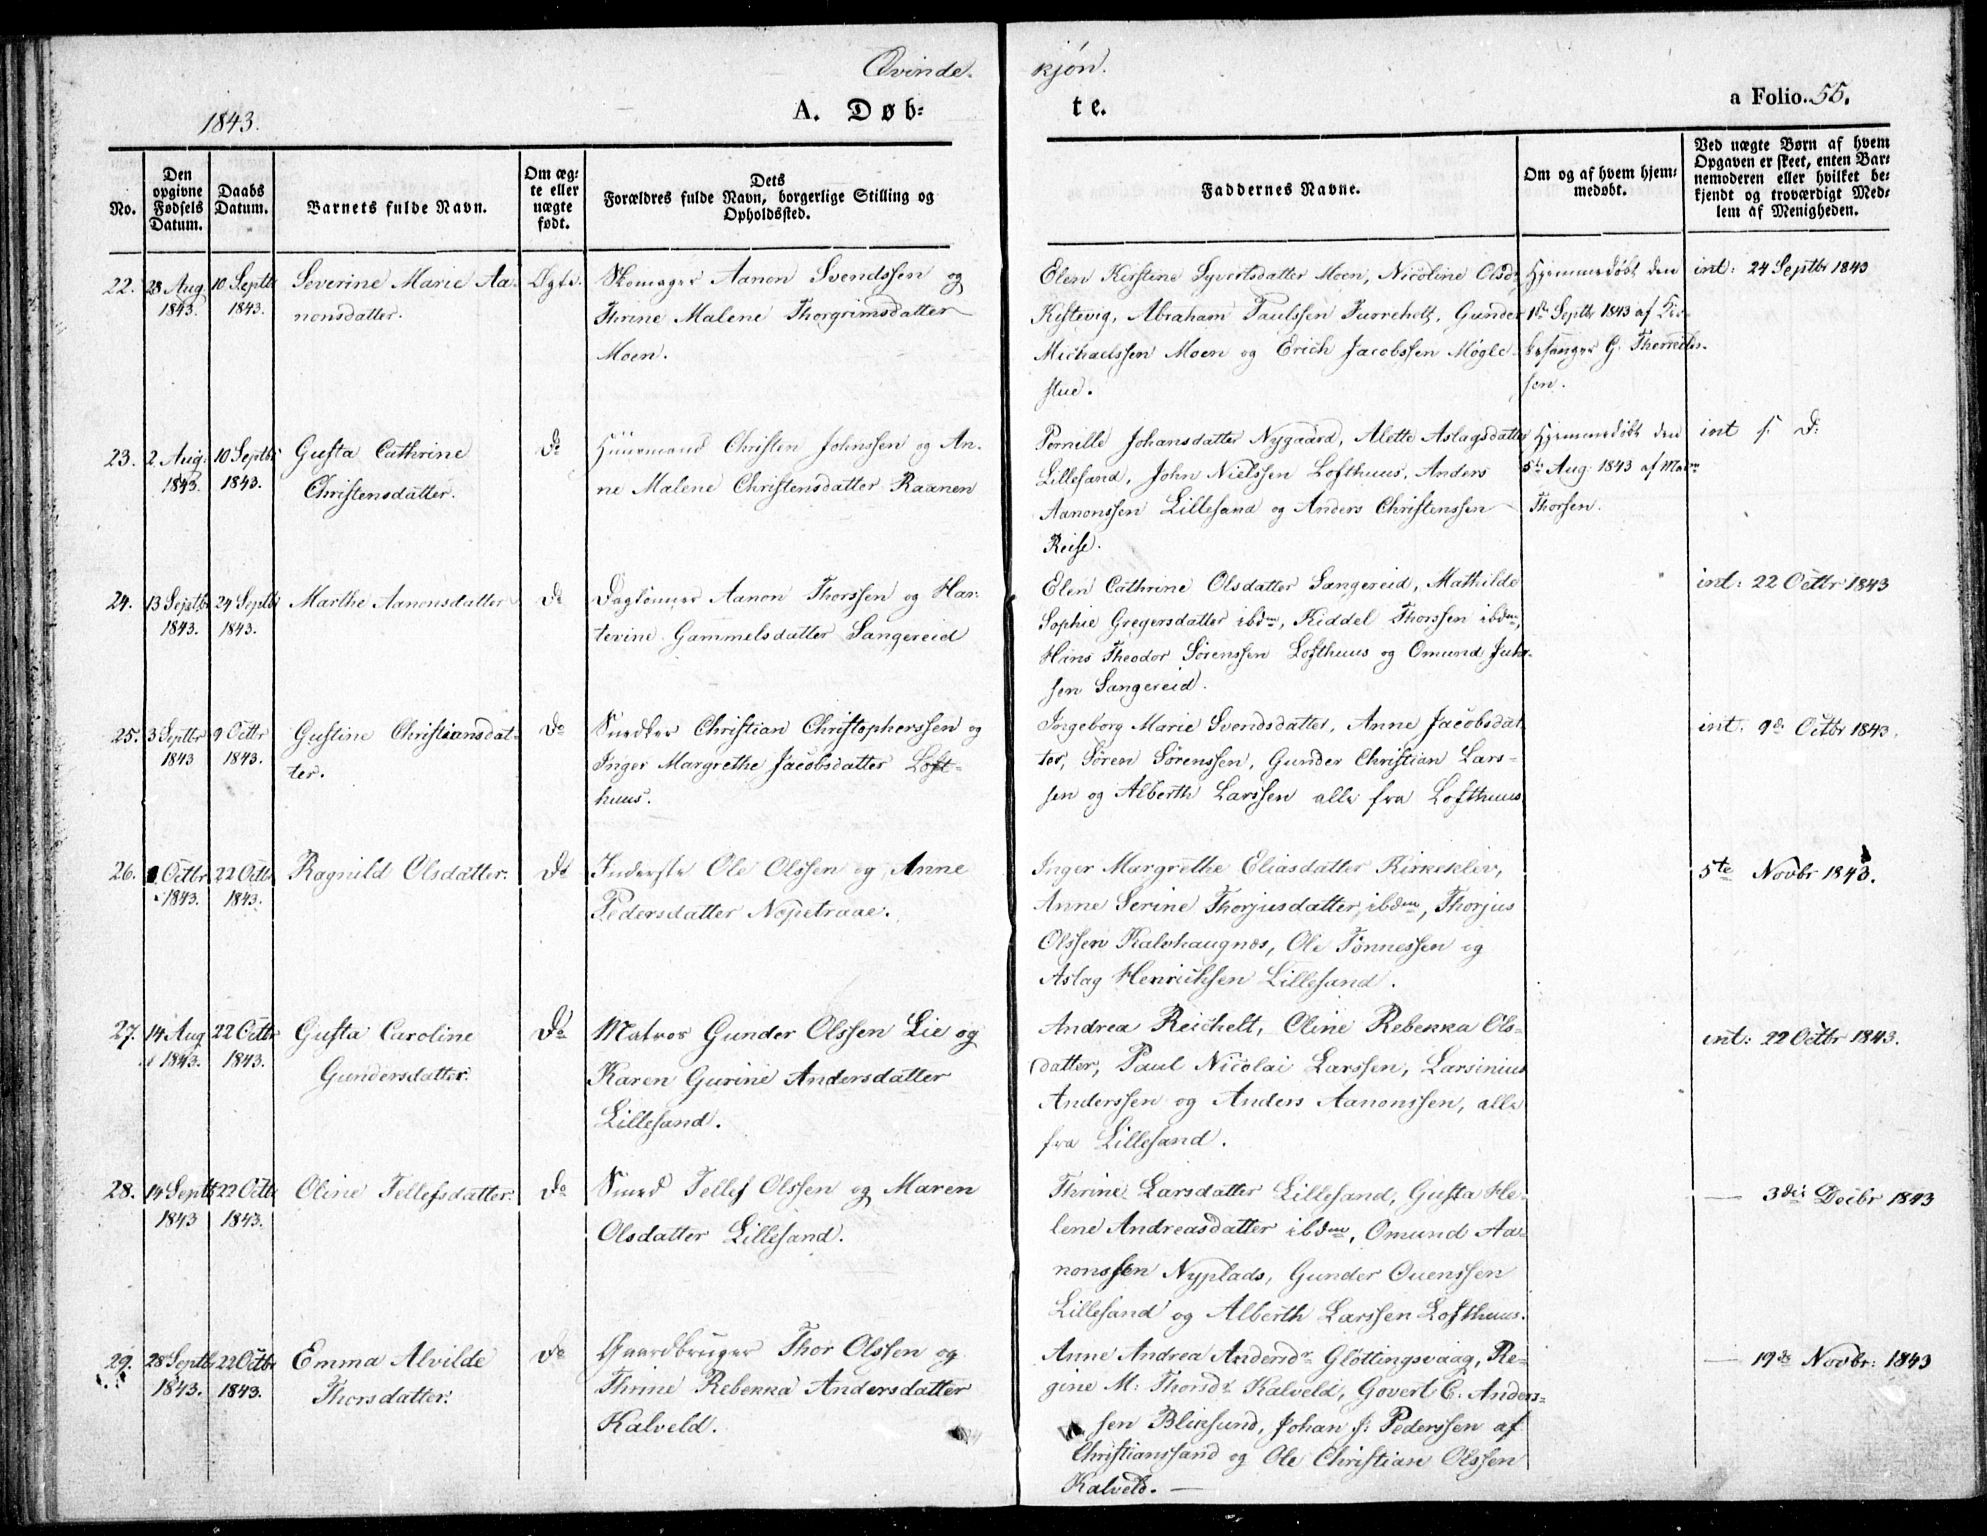 Qvinde-
kjøn.
1843.
A. Døb-
te.
a Folio. 55.
No.
Den opgivne Fødsels Datum.
Daabs Datum.
Barnets fulde Navn.
Om ægte eller uægte født.
Dets Forældres fulde Navn, borgerlige Stilling og Opholdssted.
Faddernes Navne.
Om og af hvem hjemmedøbt.
Ved uægte Børn af hvem Opgaven er skeet, enten Barnemoderen eller hvilket bekjendt og troværdigt Medlem af Menigheden.
22. 28 Aug 1843. 10 Septbr 1843.
Severine Marie Aa-
nonsdatter.
Ægte.
Skomager Aanon Svendssen og
Thrine Malene Thorgrimsdatter
Moen.
Elen Kirstine Syvertsdatter Moen, Nicoline Olsdr
Kistevig, Abraham Paulssen Furreholt, Gunder
Michaelssen Moen og Erich Jacobssen Møgle-
stue.
Hjemmedøbt den
1ste Septbr 1843 af Kir-
kesanger G. Therkels-
sen.
int: 24 Septbr 1843
23. 2 Aug: 1843. 10 Septbr 1843.
Gusta Cathrine
Christensdatter.
Do
Huusmand Christen Johnssen og An-
ne Malene Christensdatter Raanen
Pernille Johansdatter Nygaard, Alette Aslagsdatter
Lillesand, John Nielssen Lofthuus, Anders
Aanonssen Lillesand og Anders Christenssen
Reise.
Hjemmedøbt den
5te Aug. 1843 af
Thorsen.
int s. D:
24. 13 Septbr 1843. 24 Septbr 1843.
Marthe Aanonsdatter
Do
Daglønner Aanon Thorssen og Ha-
terine Gammelsdatter Sangereid
Elen Cathrine Olsdatter Sangereid, Mathilde
Sophie Gregersdatter ibdm, Kiddel Thorssen ibdm,
Hans Theodor Sørenssen Lofthuus og Omund
sen Sangereid.
int: 22 Octbr 1843
25. 3 Septbr 1843 9 Octbr 1843.
Gustine Christiansdat-
ter.
Do
Snedker Christian Christopherssen og
Inger Margrethe Jacobsdatter Loft-
huus.
Ingeborg Marie Svendsdatter, Anne Jacobsdat
ter, Søren Sørenssen, Gunder Christian Lars-
sen og Alberth Larssen alle fra Lofthuus
int. 9de Octbr 1843.
26. Octbr 1843. 22 Octbr 1843.
Ragnild Olsdatter.
Do
Inderste Ole Olssen og Anne
Pedersdatter Nepetraae.
Inger Margrethe Eliasdatter Kirkekleiv,
Anne Serine Thorjusdatter ibdm, Thorjus
Olssen Kalvhaugnes, Ole Tønnessen og
Aslag Henrichsen Lillesand.
5te Novbr 1843.
27. 14 Aug 1843. 22 Octbr 1843.
Gusta Caroline
Gundersdatter.
Do
Matros Gunder Olssen Lie og
Karen Gurine Andersdatter
Lillesand.
Andrea Reichelt, Oline Rebekka Ols-
datter, Paul Nicolai Larssen, Larsinius
Anderssen og Anders Aanonssen, alle
fra Lillesand.
int: 22 Octbr 1843.
28. 14 Septbr 1843 22 Octbr 1843.
Oline Tellefsdatter.
Do
Smed Tellef Olssen og Maren
Olsdatter Lillesand.
Thrine Larsdatter Lillesand, Gusta He-
lene Andreasdatter ibdm, Omund Aa-
nonssen Nyplads, Gunder Ouenssen
Lillesand og Alberth Larssen Lofthuus.
— 3die Decbr 1843
29. 28 Septbr 1843. 22 Octbr 1843.
Emma Alvilde
Thorsdatter.
Do
Gaardbruger Thor Olssen og
Thrine Rebekka Andersdatter
Kalveld.
Anne Andrea Andersdr Gløttingsvaag, Re-
gine M: Thorsdr Kalveld, Govert C. Anders-
sen Blixsund, Johan J: Pederssen af
Christianssand og Ole Christian Olssen
Kalveld. —
— 19de Novbr: 1843